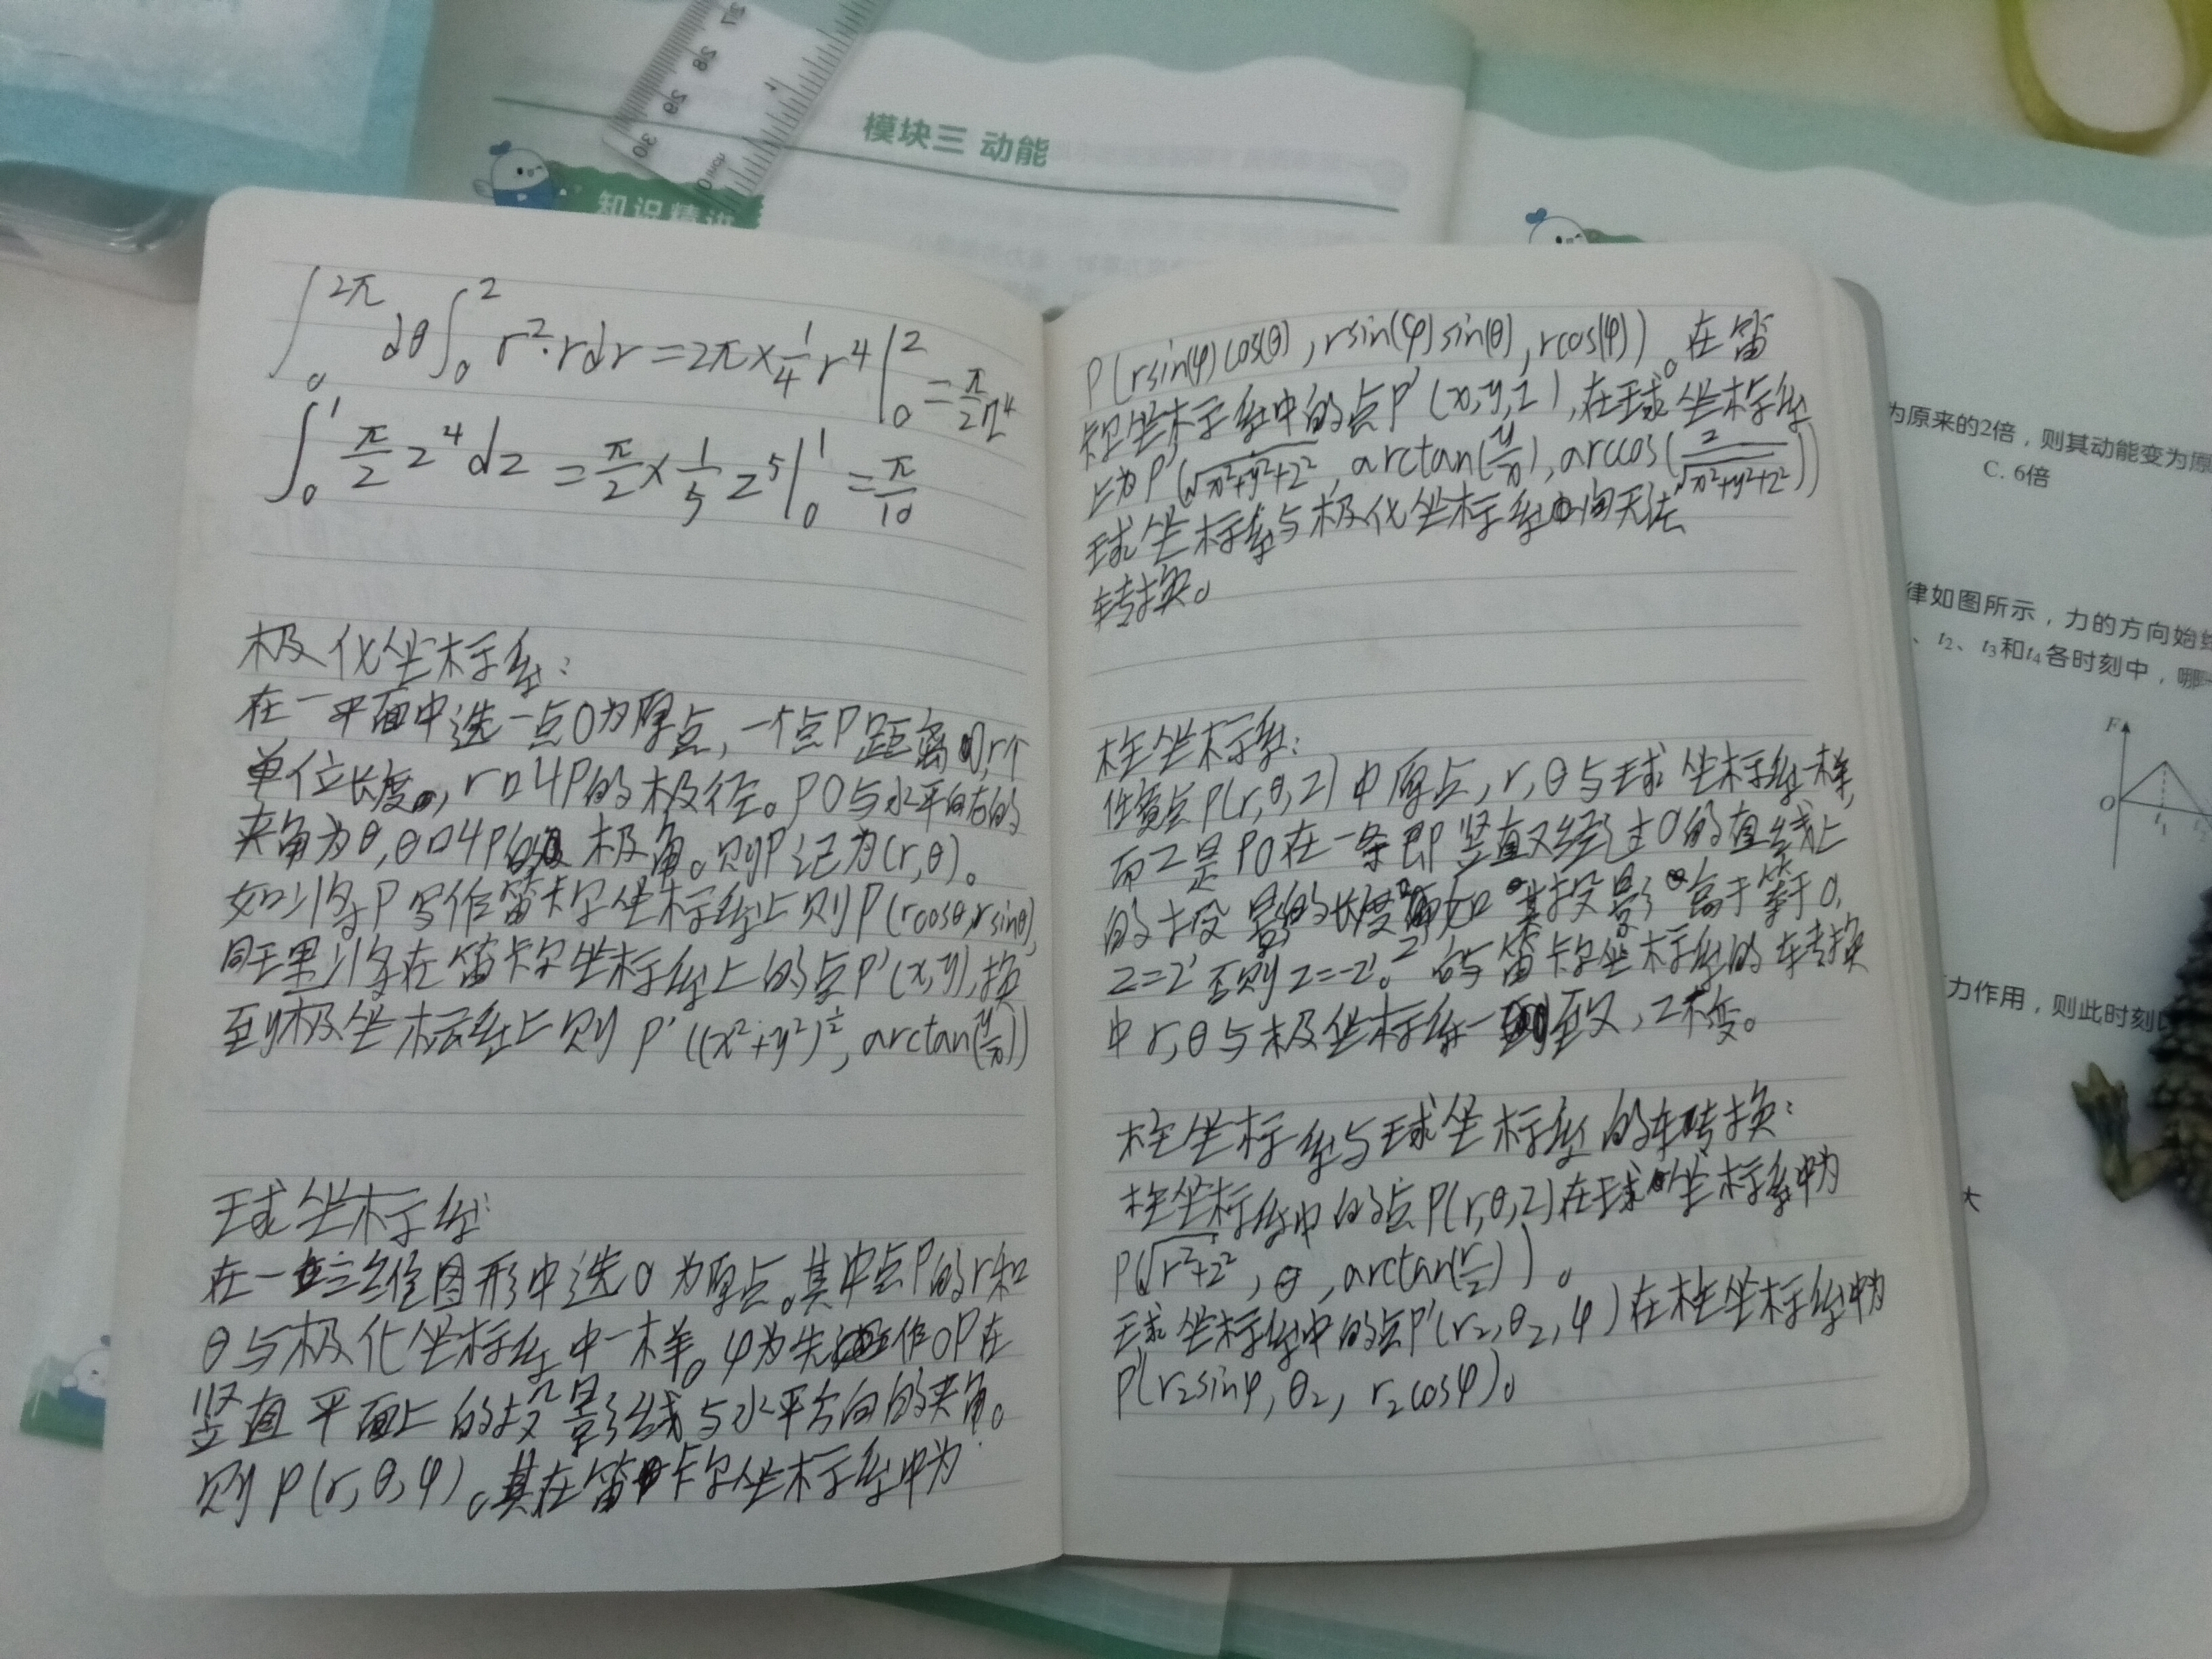 模块三 动能
知识精讲
∫₀^{2π} dθ ∫₀^2 r²·rdr = 2π × 1/4 r⁴ |₀^2 = π/2 z⁴
∫₀^1 π/2 z⁴ dz = π/2 × 1/5 z⁵ |₀^1 = π/10
极化坐标系:
在一平面中选一点O为原点,一个点P距离O,r个
单位长度,r叫P的极径。PO与水平向右的
夹角为θ,θ叫P的极角。则P记为(r,θ)。
如以将P写作笛卡尔坐标系上则P(rcosθ,rsinθ),
同理将在笛卡尔坐标系上的点P'(x,y),换
到极坐标系上则 P'((x²+y²)^½, arctan(y/x))
球坐标系:
在一三维图形中选O为原点。其中点P的r和
θ与极化坐标系中一样。φ为先作OP在
竖直平面上的投影线与水平方向的夹角。
则P(r,θ,φ)。其在笛卡尔坐标系中为
P(rsin(φ)cos(θ),rsin(φ)sin(θ),rcos(φ))。在笛
卡尔坐标系中的点P'(x,y,z),在球坐标系
上为P'(√x²+y²+z², arctan(y/x), arccos(z/√x²+y²+z²))
球坐标系与极化坐标系间无法
转换。
柱坐标系:
任意点P(r,θ,z)中原点,r,θ与球坐标系一样,
而z是PO在一条即竖直又经过O的直线上
的投影的长度z',如其投影高于等于O,
z=z'否则z=-z'。与笛卡尔坐标系的转换
中r,θ与极坐标系一致,z不变。
柱坐标系与球坐标系的转换:
柱坐标系中的点P(r,θ,z)在球坐标系中为
P(√r²+z², θ, arctan(r/z))。
球坐标系中的点P'(r₂,θ₂,φ)在柱坐标系中为
P'(r₂sinφ, θ₂, r₂cosφ)。
为原来的2倍,则其动能变为原
C. 6倍
律如图所示,力的方向始终
、t₂、t₃和t₄各时刻中,哪
F
O
t₁
力作用,则此时刻
大
27
28
29
30